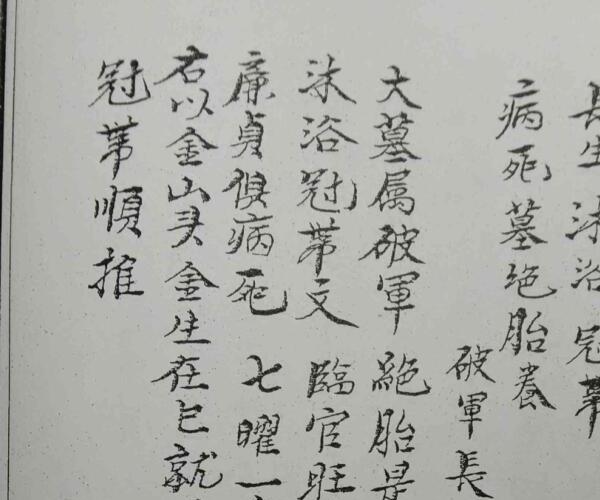 長生沐浴冠帶
病死墓绝胎養
破軍長
大墓属破軍 絕胎是
沐浴冠帶文 臨官旺
廉貞俱病死 七曜一
右以金山头金生在巳就
冠帶順推